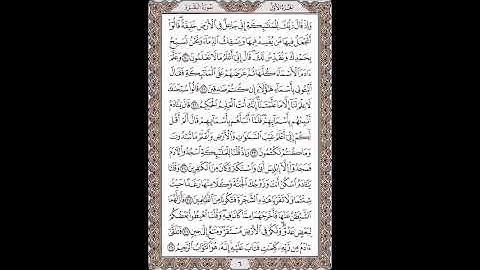 الجُزءُ الأَوَّلُ سُورَةُ البَقَرَةِ
وَإِذۡ قَالَ رَبُّكَ لِلۡمَلَٰٓئِكَةِ إِنِّي جَاعِلٞ فِي ٱلۡأَرۡضِ خَلِيفَةٗۖ قَالُوٓاْ
أَتَجۡعَلُ فِيهَا مَن يُفۡسِدُ فِيهَا وَيَسۡفِكُ ٱلدِّمَآءَ وَنَحۡنُ نُسَبِّحُ
بِحَمۡدِكَ وَنُقَدِّسُ لَكَۖ قَالَ إِنِّيٓ أَعۡلَمُ مَا لَا تَعۡلَمُونَ ٣٠ وَعَلَّمَ
ءَادَمَ ٱلۡأَسۡمَآءَ كُلَّهَا ثُمَّ عَرَضَهُمۡ عَلَى ٱلۡمَلَٰٓئِكَةِ فَقَالَ
أَنۢبِـُٔونِي بِأَسۡمَآءِ هَٰٓؤُلَآءِ إِن كُنتُمۡ صَٰدِقِينَ ٣١ قَالُواْ سُبۡحَٰنَكَ
لَا عِلۡمَ لَنَآ إِلَّا مَا عَلَّمۡتَنَآۖ إِنَّكَ أَنتَ ٱلۡعَلِيمُ ٱلۡحَكِيمُ ٣٢ قَالَ يَٰٓـَٔادَمُ
أَنۢبِئۡهُم بِأَسۡمَآئِهِمۡۖ فَلَمَّآ أَنۢبَأَهُم بِأَسۡمَآئِهِمۡ قَالَ أَلَمۡ أَقُل
لَّكُمۡ إِنِّيٓ أَعۡلَمُ غَيۡبَ ٱلسَّمَٰوَٰتِ وَٱلۡأَرۡضِ وَأَعۡلَمُ مَا تُبۡدُونَ
وَمَا كُنتُمۡ تَكۡتُمُونَ ٣٣ وَإِذۡ قُلۡنَا لِلۡمَلَٰٓئِكَةِ ٱسۡجُدُواْ لِأٓدَمَ
فَسَجَدُوٓاْ إِلَّآ إِبۡلِيسَ أَبَىٰ وَٱسۡتَكۡبَرَ وَكَانَ مِنَ ٱلۡكَٰفِرِينَ ٣٤ وَقُلۡنَا
يَٰٓـَٔادَمُ ٱسۡكُنۡ أَنتَ وَزَوۡجُكَ ٱلۡجَنَّةَ وَكُلَا مِنۡهَا رَغَدًا حَيۡثُ
شِئۡتُمَا وَلَا تَقۡرَبَا هَٰذِهِ ٱلشَّجَرَةَ فَتَكُونَا مِنَ ٱلظَّٰلِمِينَ ٣٥ فَأَزَلَّهُمَا
ٱلشَّيۡطَٰنُ عَنۡهَا فَأَخۡرَجَهُمَا مِمَّا كَانَا فِيهِۖ وَقُلۡنَا ٱهۡبِطُواْ بَعۡضُكُمۡ
لِبَعۡضٍ عَدُوّٞۖ وَلَكُمۡ فِي ٱلۡأَرۡضِ مُسۡتَقَرّٞ وَمَتَٰعٌ إِلَىٰ حِينٖ ٣٦ فَتَلَقَّىٰٓ
ءَادَمُ مِن رَّبِّهِۦ كَلِمَٰتٖ فَتَابَ عَلَيۡهِۚ إِنَّهُۥ هُوَ ٱلتَّوَّابُ ٱلرَّحِيمُ ٣٧
٦